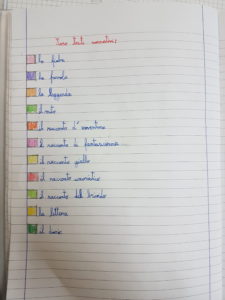 Sono testi narrativi:
la fiaba
la favola
la leggenda
il mito
il racconto d'avventura
il racconto di fantascienza
il racconto giallo
il racconto umoristico
il racconto del brivido
la lettera
il diario